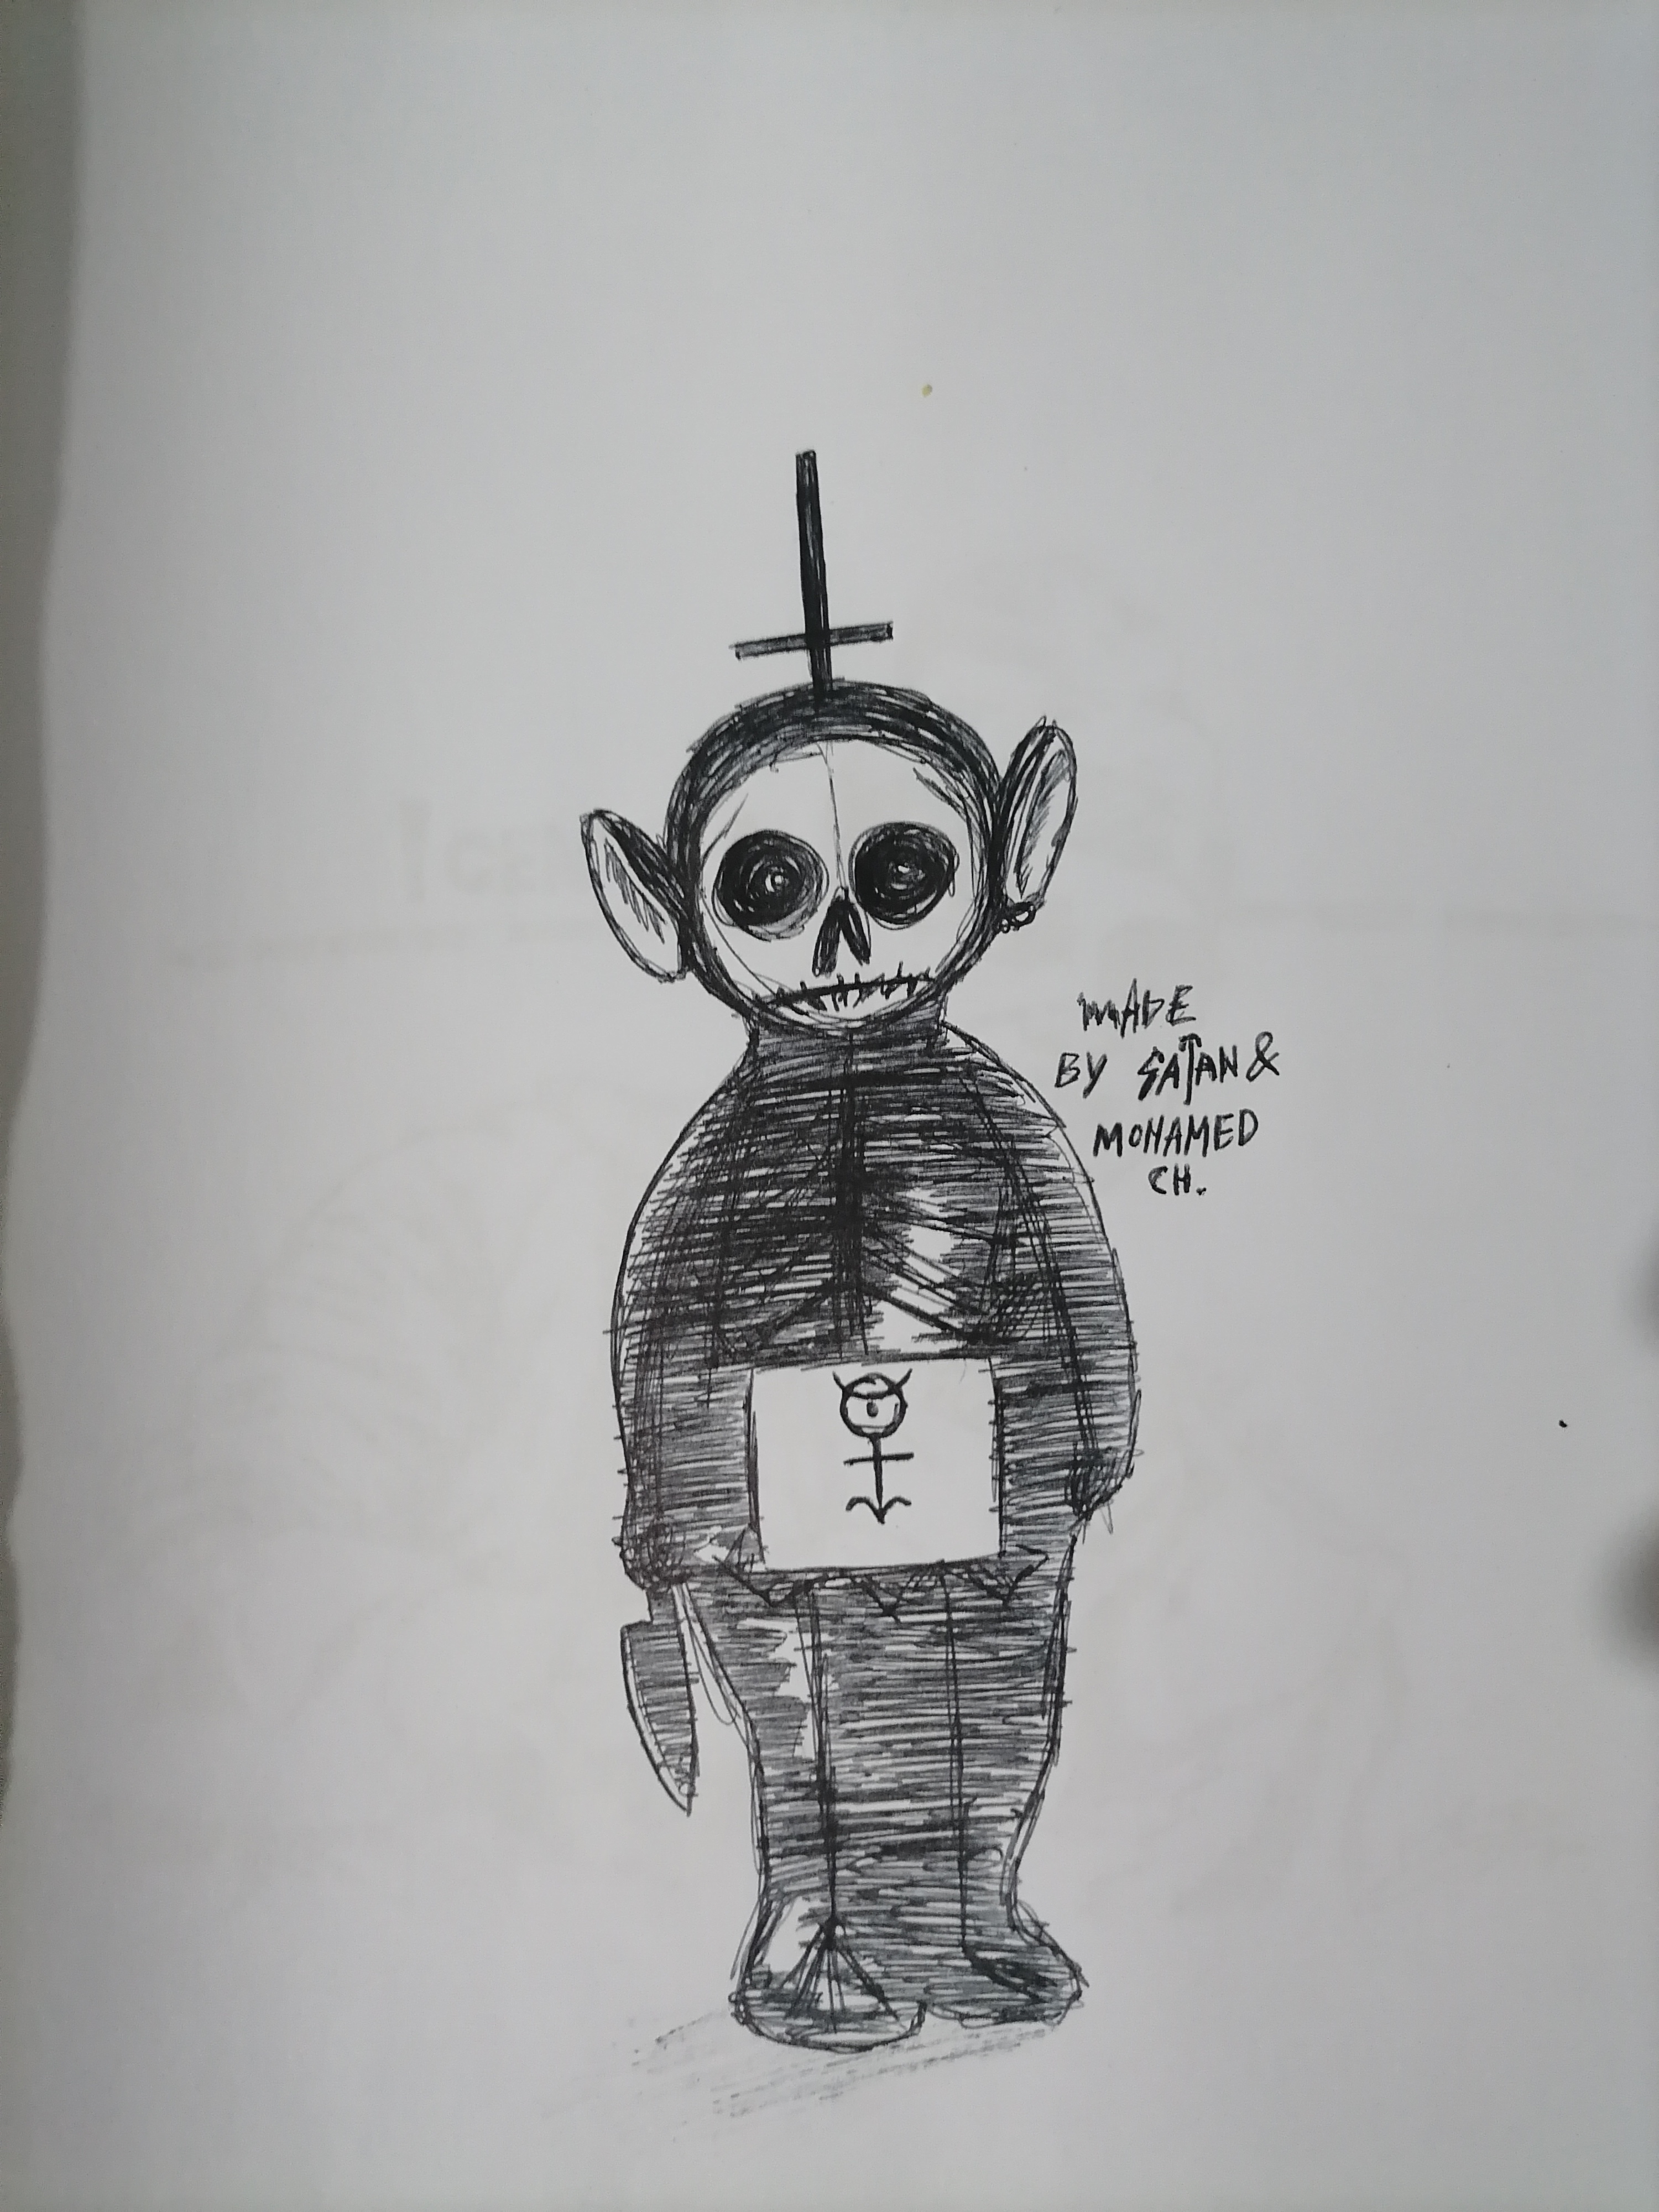 MADE
BY SATAN &
MOHAMED
CH.